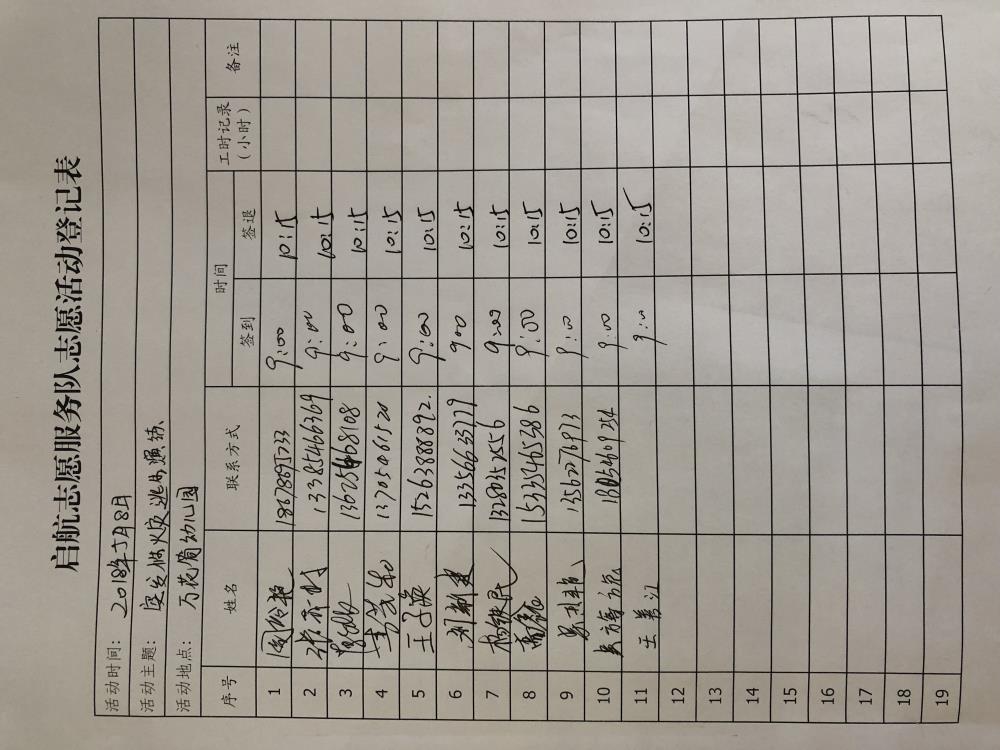 启航志愿服务队志愿活动登记表
活动时间： 2018年5月8日
活动主题： 突发性火灾逃生演练
活动地点： 万花筒幼儿园
序号 姓名 联系方式 时间 工时记录（小时） 备注
签到 签退
1 9:00 10:15
2 13385466369 9:00 10:15
3 9:00 10:15
4 13705461520 9:00 10:15
5 王子英 15263888892. 9:00 10:15
6 13356663779 900 10:15
7 13280352556 9:00 10:15
8 15335465386 9:00 10:15
9 13562276973 9:00 10:15
10 9:00 10:15
11 王善江 9:00 10:15
12
13
14
15
16
17
18
19